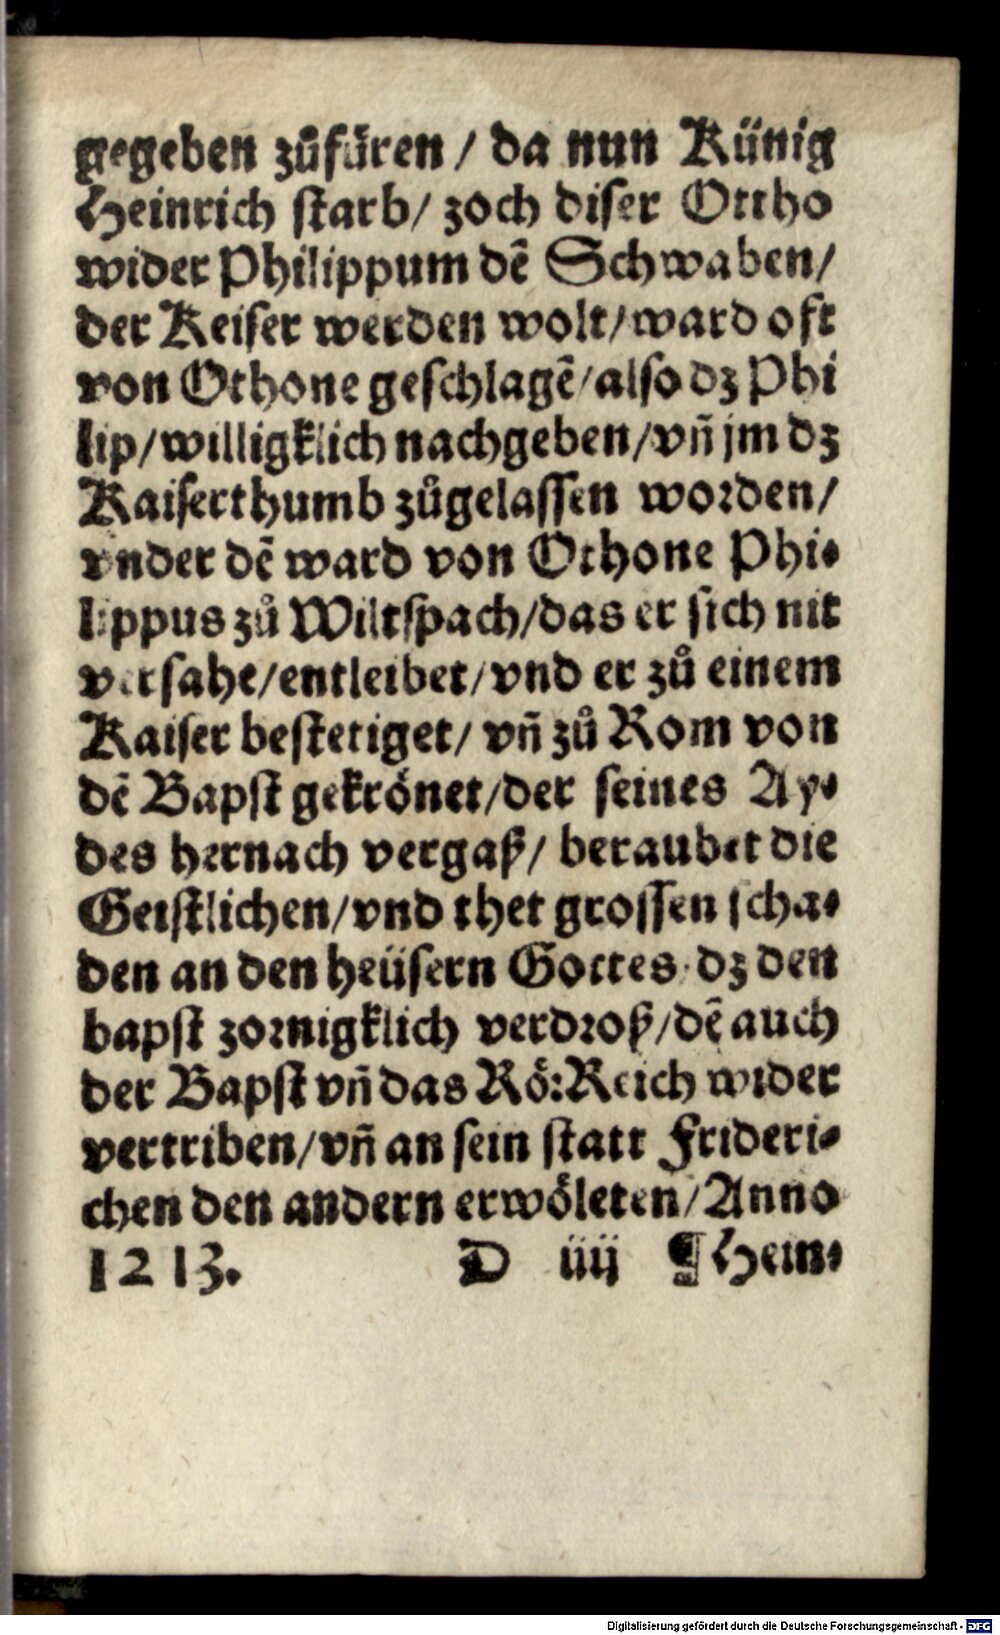 gegeben zůfüren / da nun Künig
Heinrich starb / zoch diser Ottho
wider Philippum dē Schwaben /
der Keiser werden wolt / ward oft
von Othone geschlagē / also dz Phi
lip / willigklich nachgeben / vñ jm dz
Kaiserthumb zůgelassen worden /
vnder dē ward von Othone Phi⸗
lippus zů Wiltspach / das er sich nit
versahe / entleibet / vnd er zů einem
Kaiser bestetiget / vñ zů Rom von
dē Bapst gekrönet / der seines Ay⸗
des hernach vergaß / beraubet die
Geistlichen / vnd thet grossen scha⸗
den an den heüsern Gottes dz den
bapst zornigklich verdroß / dē auch
der Bapst vñ das Rö: Reich wider
vertriben / vñ an sein statt Frideri⸗
chen den andern erwöleten / Anno
1213. D iiij ¶ Hein⸗
Digitalisierung gefördert durch die Deutsche Forschungsgemeinschaft - DFG